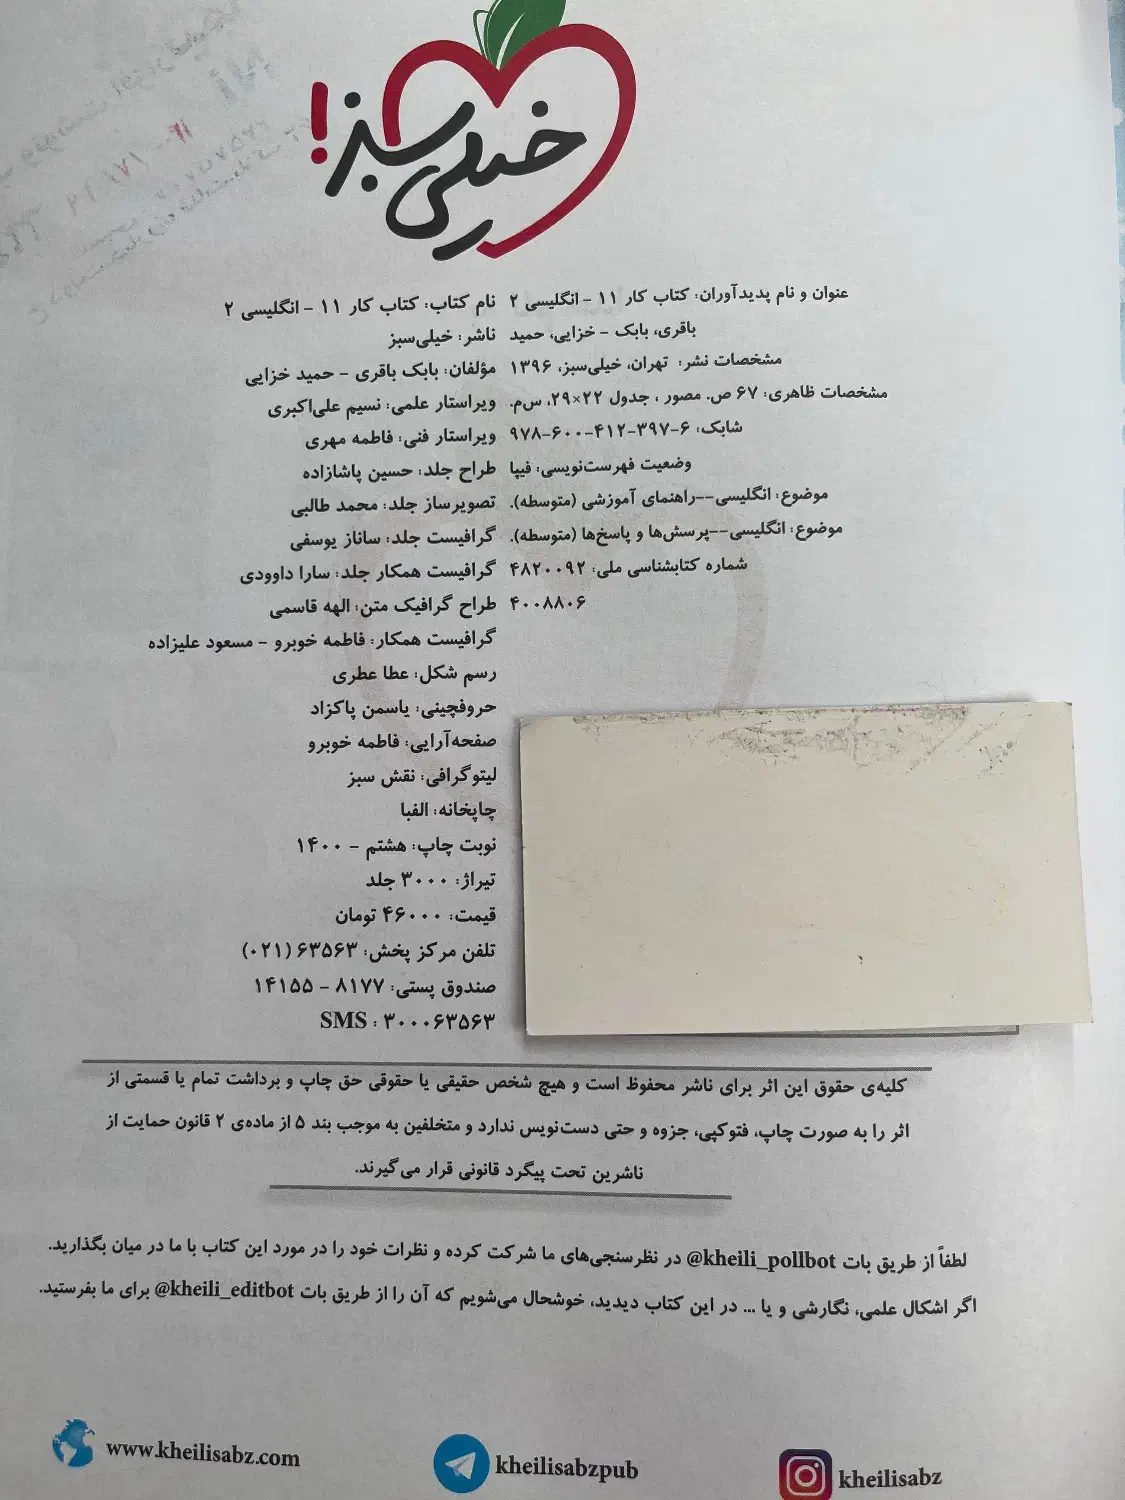 خیلی سبز!
عنوان و نام پدیدآوران: کتاب کار ۱۱ – انگلیسی ۲
باقری، بابک – خزایی، حمید
مشخصات نشر: تهران، خیلی‌سبز، ۱۳۹۶
مشخصات ظاهری: ۶۷ ص. مصور ، جدول ۲۲×۲۹، س‌م.
شابک: ۶-۳۹۷-۴۱۲-۶۰۰-۹۷۸
وضعیت فهرست‌نویسی: فیپا
موضوع: انگلیسی--راهنمای آموزشی (متوسطه).
موضوع: انگلیسی--پرسش‌ها و پاسخ‌ها (متوسطه).
شماره کتابشناسی ملی: ۴۸۲۰۰۹۲
۴۰۰۸۸۰۶
نام کتاب: کتاب کار ۱۱ – انگلیسی ۲
ناشر: خیلی‌سبز
مؤلفان: بابک باقری – حمید خزایی
ویراستار علمی: نسیم علی‌اکبری
ویراستار فنی: فاطمه مهری
طراح جلد: حسین پاشازاده
تصویرساز جلد: محمد طالبی
گرافیست جلد: ساناز یوسفی
گرافیست همکار جلد: سارا داوودی
طراح گرافیک متن: الهه قاسمی
گرافیست همکار: فاطمه خوبرو – مسعود علیزاده
رسم شکل: عطا عطری
حروفچینی: یاسمن پاکزاد
صفحه‌آرایی: فاطمه خوبرو
لیتوگرافی: نقش سبز
چاپخانه: الفبا
نوبت چاپ: هشتم – ۱۴۰۰
تیراژ: ۳۰۰۰ جلد
قیمت: ۴۶۰۰۰ تومان
تلفن مرکز پخش: ۶۳۵۶۳ (۰۲۱)
صندوق پستی: ۸۱۷۷ – ۱۴۱۵۵
SMS : ۳۰۰۰۶۳۵۶۳
کلیه‌ی حقوق این اثر برای ناشر محفوظ است و هیچ شخص حقیقی یا حقوقی حق چاپ و برداشت تمام یا قسمتی از
اثر را به صورت چاپ، فتوکپی، جزوه و حتی دست‌نویس ندارد و متخلفین به موجب بند ۵ از ماده‌ی ۲ قانون حمایت از
ناشرین تحت پیگرد قانونی قرار می‌گیرند.
لطفاً از طریق بات @kheili_pollbot در نظرسنجی‌های ما شرکت کرده و نظرات خود را در مورد این کتاب با ما در میان بگذارید.
اگر اشکال علمی، نگارشی و یا ... در این کتاب دیدید، خوشحال می‌شویم که آن را از طریق بات @kheili_editbot برای ما بفرستید.
www.kheilisabz.com
kheilisabzpub
kheilisabz